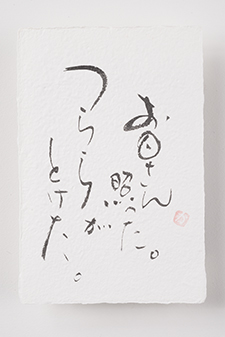 お日さん
照った。
つららが
とけた、。